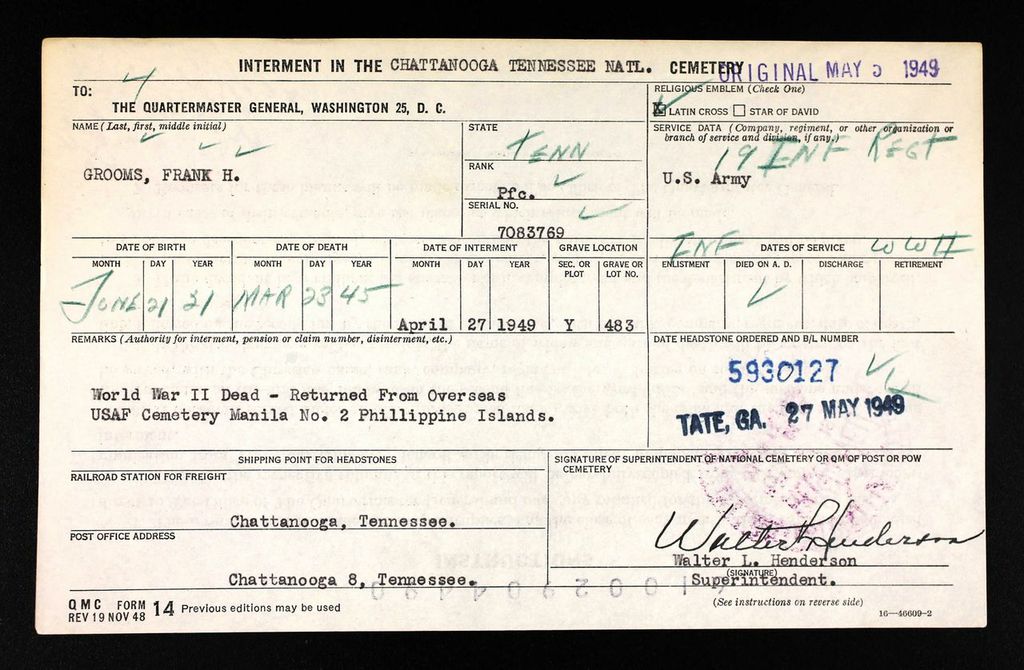 INTERMENT IN THE CHATTANOOGA TENNESSEE NATL. CEMETERY
ORIGINAL MAY 5 1949
4
TO:
THE QUARTERMASTER GENERAL, WASHINGTON 25, D. C.
RELIGIOUS EMBLEM (Check One)
X LATIN CROSS STAR OF DAVID
NAME (Last, first, middle initial)
GROOMS, FRANK H.
STATE
TENN
RANK
Pfc.
SERIAL NO.
7083769
SERVICE DATA (Company, regiment, or other organization or
branch of service and division, if any.)
19 INF REGT
U.S. Army
DATE OF BIRTH DATE OF DEATH DATE OF INTERMENT GRAVE LOCATION
MONTH DAY YEAR MONTH DAY YEAR MONTH DAY YEAR SEC. OR PLOT GRAVE OR LOT NO.
JUNE 21 21 MAR 23 45 April 27 1949 Y 483
INF DATES OF SERVICE WW II
ENLISTMENT DIED ON A. D. DISCHARGE RETIREMENT
REMARKS (Authority for interment, pension or claim number, disinterment, etc.)
World War II Dead - Returned From Overseas
USAF Cemetery Manila No. 2 Phillippine Islands.
DATE HEADSTONE ORDERED AND B/L NUMBER
5930127
TATE, GA. 27 MAY 1949
SHIPPING POINT FOR HEADSTONES
RAILROAD STATION FOR FREIGHT
Chattanooga, Tennessee.
POST OFFICE ADDRESS
Chattanooga 8, Tennessee.
SIGNATURE OF SUPERINTENDENT OF NATIONAL CEMETERY OR QM OF POST OR POW
CEMETERY
Walter L Henderson
Walter L. Henderson
(SIGNATURE)
Superintendent.
(See instructions on reverse side)
QMC FORM 14 Previous editions may be used
REV 19 NOV 48
16—46609-2